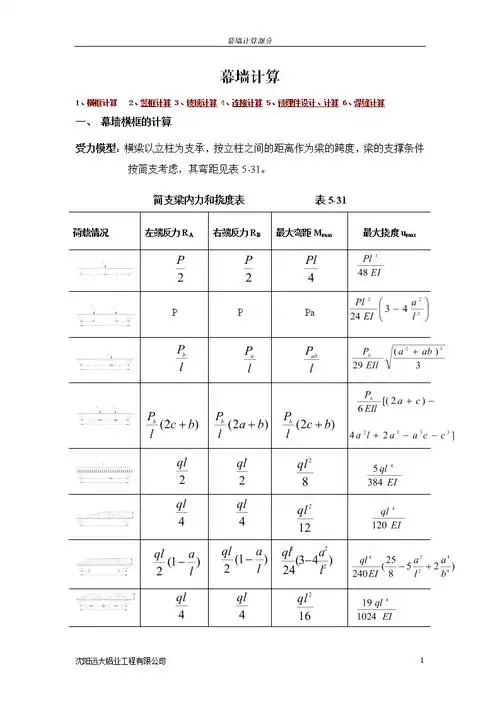 幕墙计算部分
幕墙计算
1、横框计算 2、竖框计算 3、玻璃计算 4、连接计算 5、预埋件设计、计算 6、焊缝计算
一、 幕墙横框的计算
受力模型：横梁以立柱为支承，按立柱之间的距离作为梁的跨度，梁的支撑条件
按简支考虑，其弯距见表 5-31。
简支梁内力和挠度表 表 5-31
荷载情况 左端反力 R_A 右端反力 R_B 最大弯距 M_max 最大挠度 u_max
P/2 P/2 Pl/4 Pl^3/(48EI)
P P Pa Pl^2/(24EI) (3-4a^2/l^2)
P_b/l P_a/l P_ab/l P_b/(29EIl) √((a^2+ab)^3/3)
P_b/l(2c+b) P_b/l(2a+b) P_b/l(2c+b) P_b/(6EIl)[(2a+c)-
4a^2l+2a^3-a^3c-c^3]
ql/2 ql/2 ql^2/8 5ql^4/(384EI)
ql/4 ql/4 ql^2/12 ql^4/(120EI)
ql/2(1-a/l) ql/2(1-a/l) ql^2/24(3-4a^2/l^2) ql^4/(240EI)(25/8-5a^2/l^2+2a^4/b^4)
ql/4 ql/4 ql^2/16 19ql^4/(1024EI)
沈阳远大铝业工程有限公司 1